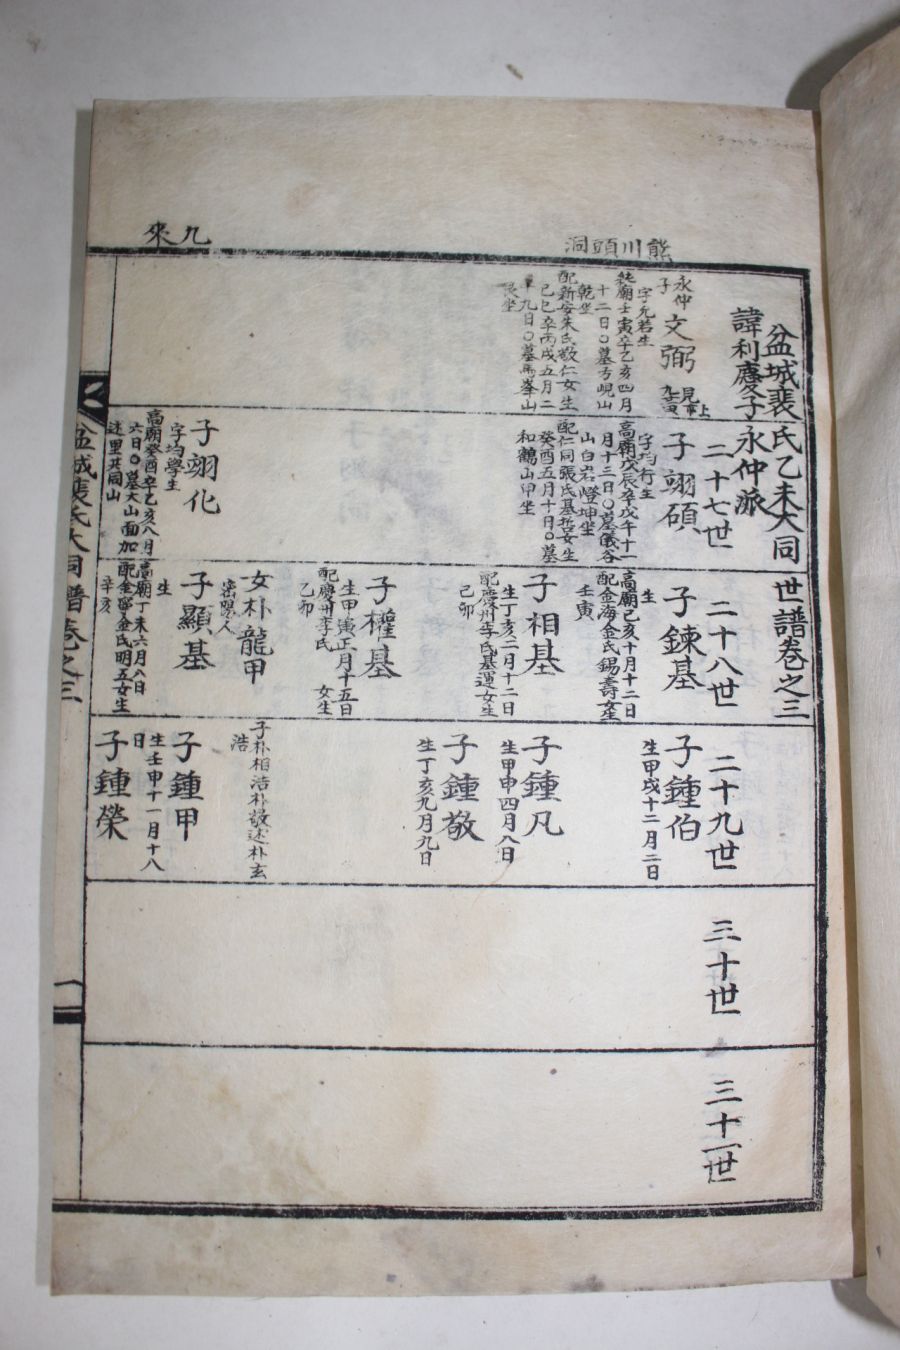 熊川頭洞
九來
盆城裴氏乙未大同世譜卷之三
諱利慶子永仲派
二十七世
二十八世
二十九世
三十世
三十一世
永仲
子
文弼
見上
字允若生
純廟壬寅卒乙亥四月
十二日○墓方峴山
乾坐
配新安朱氏敬仁女生
己巳卒丙戌五月二
十九日○墓馬峯山
艮坐
子翊碩
字均行生
高廟戊辰卒戊午十一
月十三日○墓儀谷
山白岩嶝坤坐
配仁同張氏基哲女生
癸酉五月十日○墓
和鶴山甲坐
子翊化
字均學生
高廟癸酉卒乙亥八月
六日○墓大山面加
述里共同山
子鍊基
生
高廟己亥十月十二日
配金海金氏錫壽女生
壬寅
子相基
生丁亥二月十二日
配慶州李氏基運女生
己卯
子權基
生甲寅正月十五日
配慶州李氏 女生
乙卯
女朴龍甲
密陽人
子顯基
生
高廟丁未六月八日
配金寧金氏明五女生
辛亥
子鍾伯
生甲戌十二月二日
子鍾凡
生甲申四月八日
子鍾敬
生丁亥九月九日
子朴相浩朴敬述朴玄
浩
子鍾甲
生壬申十一月十八
日
子鍾榮
盆城裴氏大同譜卷之三
一